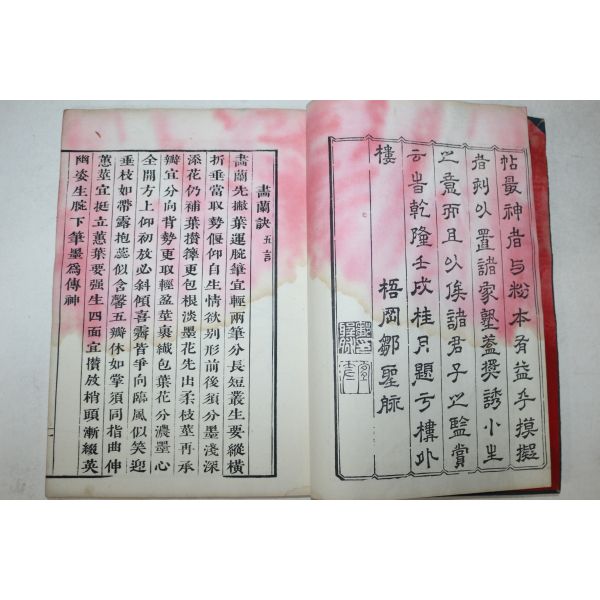 帖最神者与粉本有益乎摸擬
者刻以置諸家塾蓋奬誘小生
之意而且以俟諸君子之監賞
云旹乾隆壬戌桂月題亏樓外
樓
梧岡鄒聖脉
畵蘭訣 五言
畵蘭先撇葉運腕筆宜輕兩筆分長短叢生要縱橫
折垂當取勢偃仰自生情欲别形前後須分墨淺深
添花仍補葉攢籜更包根淡墨花先出柔枝莖再承
瓣宜分向背勢更取輕盈莖裹纖包葉花分濃墨心
全開方上仰初放必斜傾喜霽皆爭向臨風似笑迎
垂枝如帶露抱蕊似含馨五瓣休如掌須同指曲伸
蕙莖宜挺立蕙葉要强生四面宜攢放梢頭漸綴英
幽姿生腕下筆墨為傳神